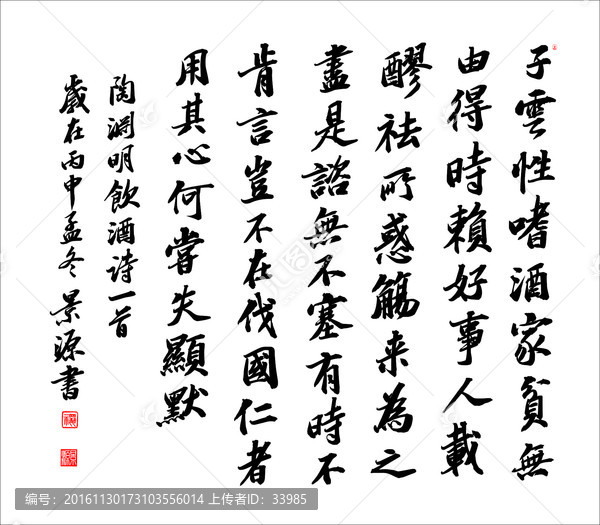 子雲性嗜酒家貧無
由得時賴好事人載
醪祛所惑觴来為之
盡是諮無不塞有時不
肯言豈不在伐國仁者
用其心何嘗失顯默
陶淵明飲酒诗一首
歲在丙申孟冬景源書
编号：20161130173103556014 上传者ID：33985